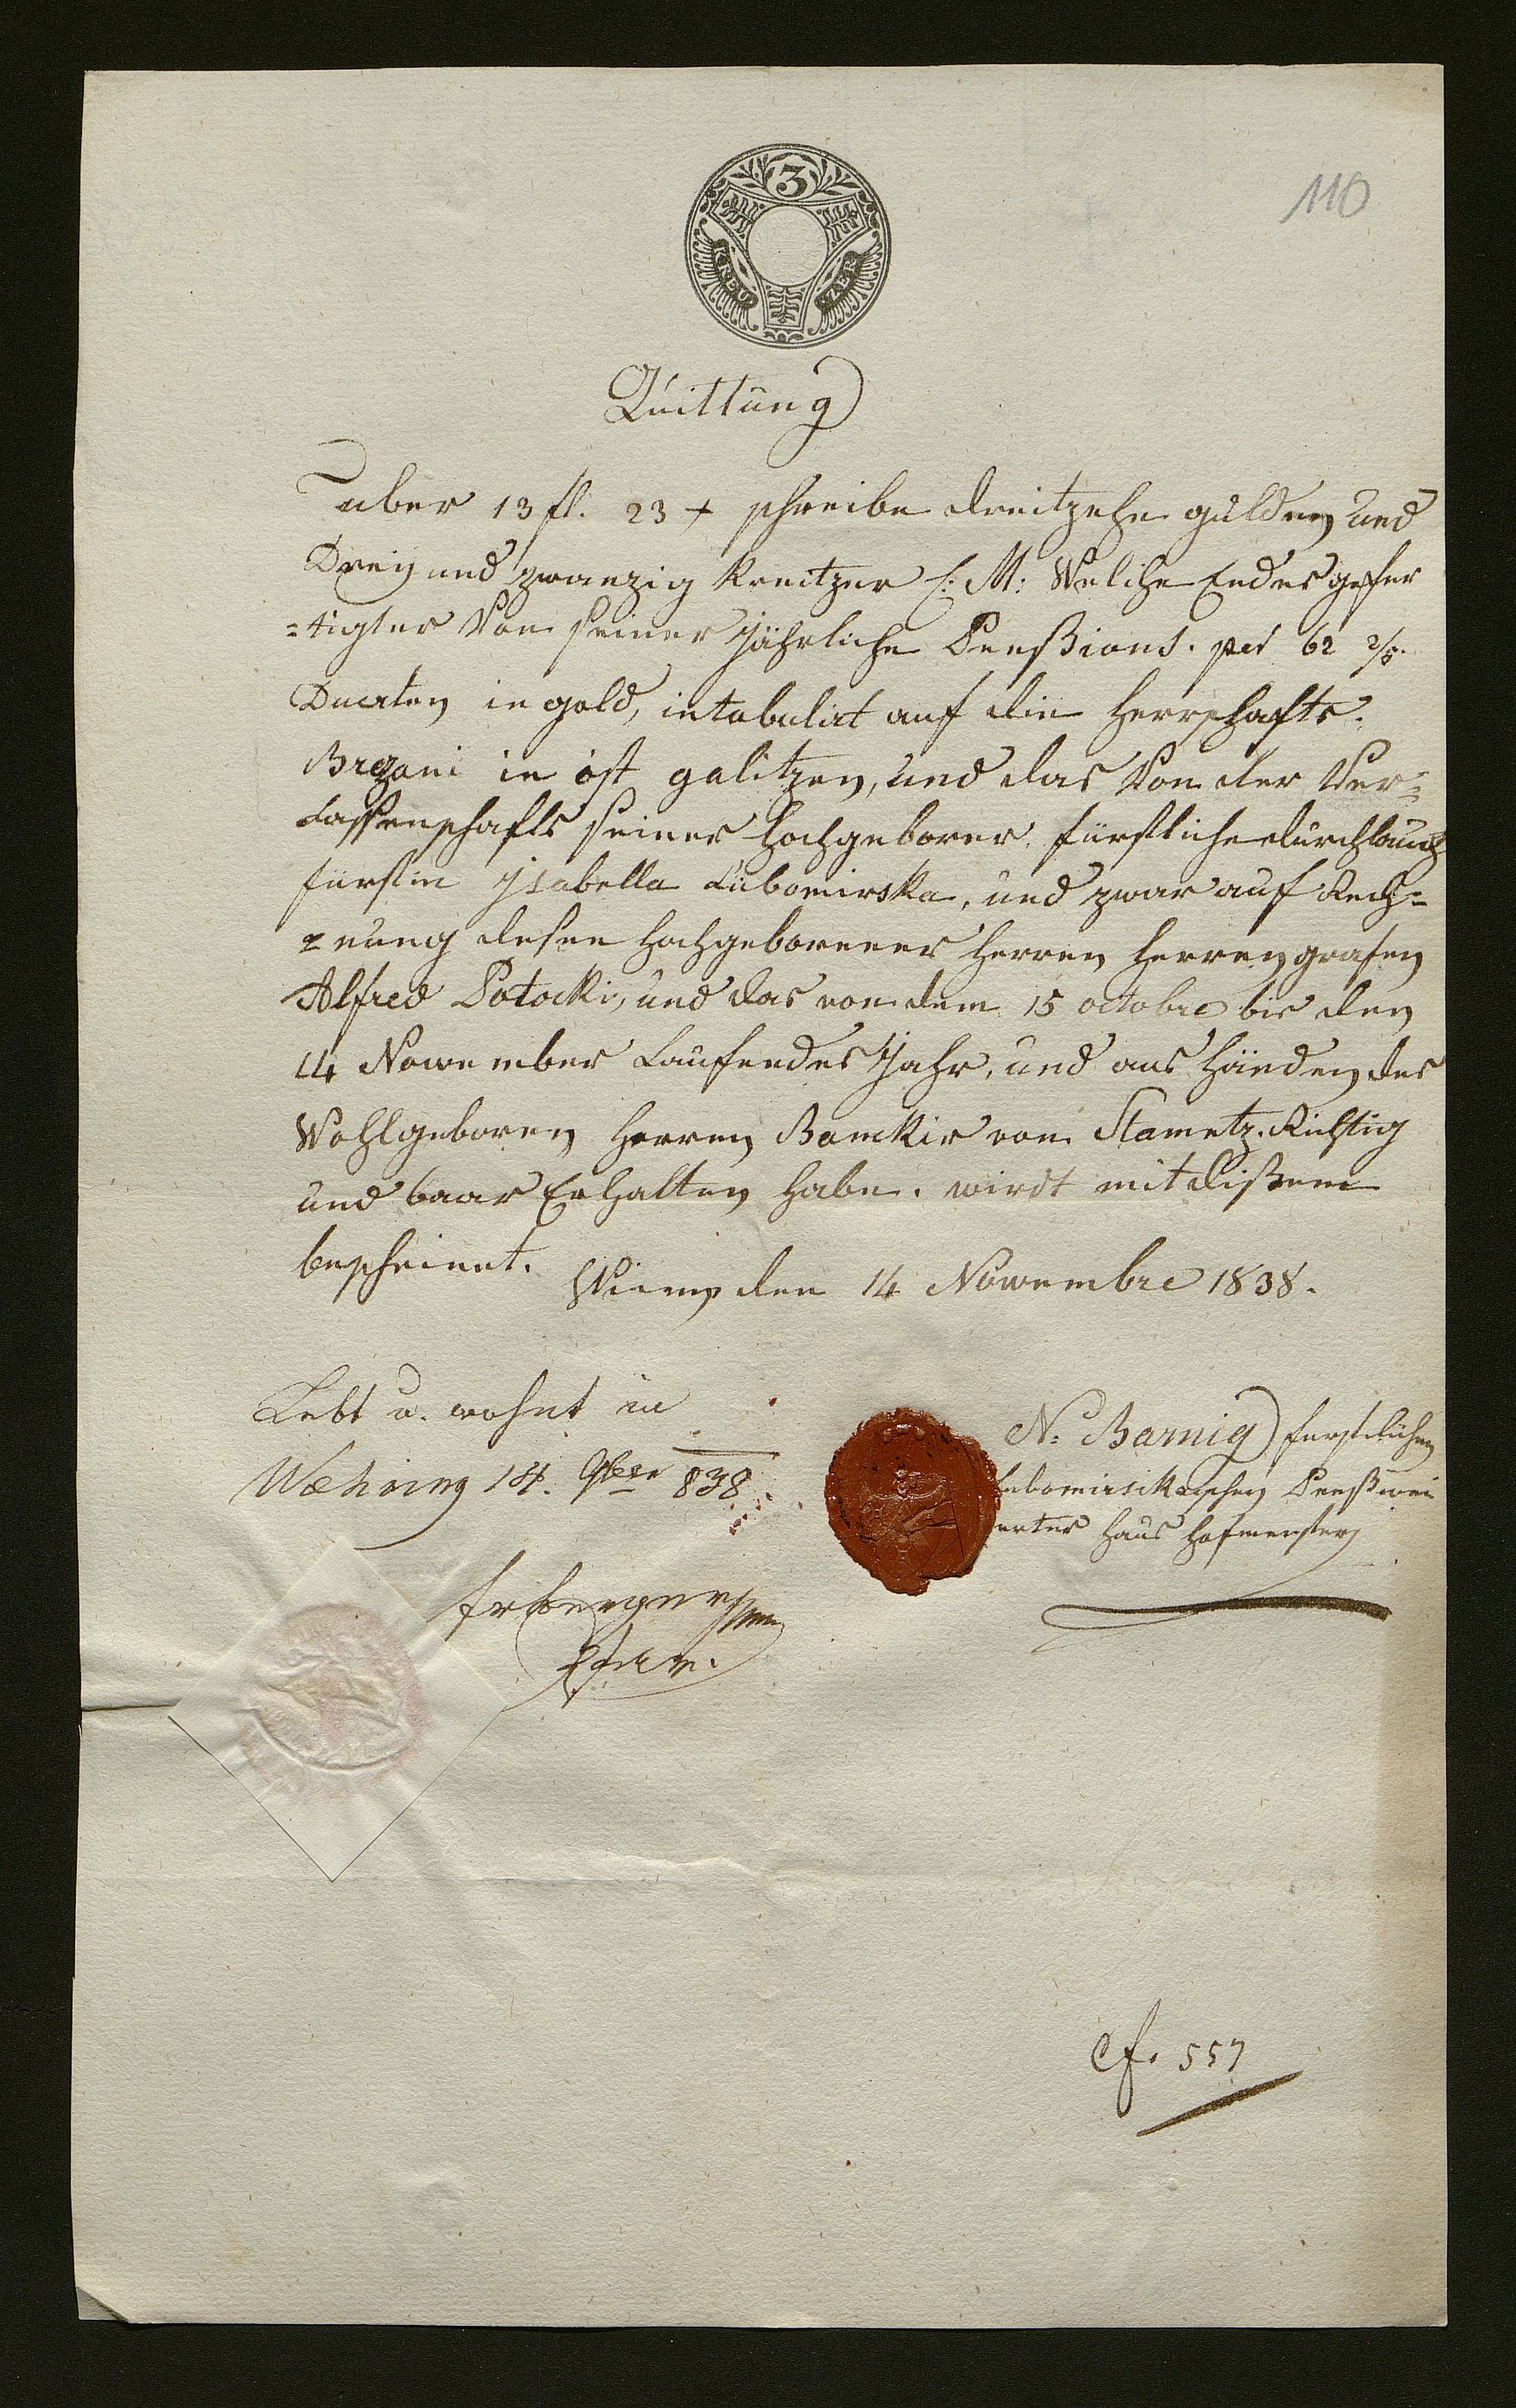 110
3
KREU ZER
Quittung
uber 13 fl. 23 x schreibe dreitzehn gulden und
Dreÿ und zwanzig Kreitzer C: M: Welche Endes gefer
=tigter Von seiner Jährliche Penßions. per 62 2/5.
Ducaten in gold, intabulirt auf die Herrschafts.
Brzani in öst galitzen, und das Von der Ver=
Lassenschafts seiner Hochgeborner. fürstliche durchlauch
fürstin Isabella Lubomirska, und zwar auf Rech=
=nung desen Hochgebornener Herren Herren grafen
Alfred Potocki, und das von dem 15 octobre bis den
14 Nowember Laufendes Jahr, und aus Händen des
Wohlgeboren Herren Banckir von Stametz. Richtig
und baar Erhalten habe. wirdt mit dißem
bescheinet.
Wienn den 14 Nowembre 1838.
Lebt u. wohnt in
Wæhring 14. 9ber 838
N: Barnig fürstlichen
Lubomirsikaschen Penßioni
erter Haus Hofmeister
Pfarr.
cf. 557